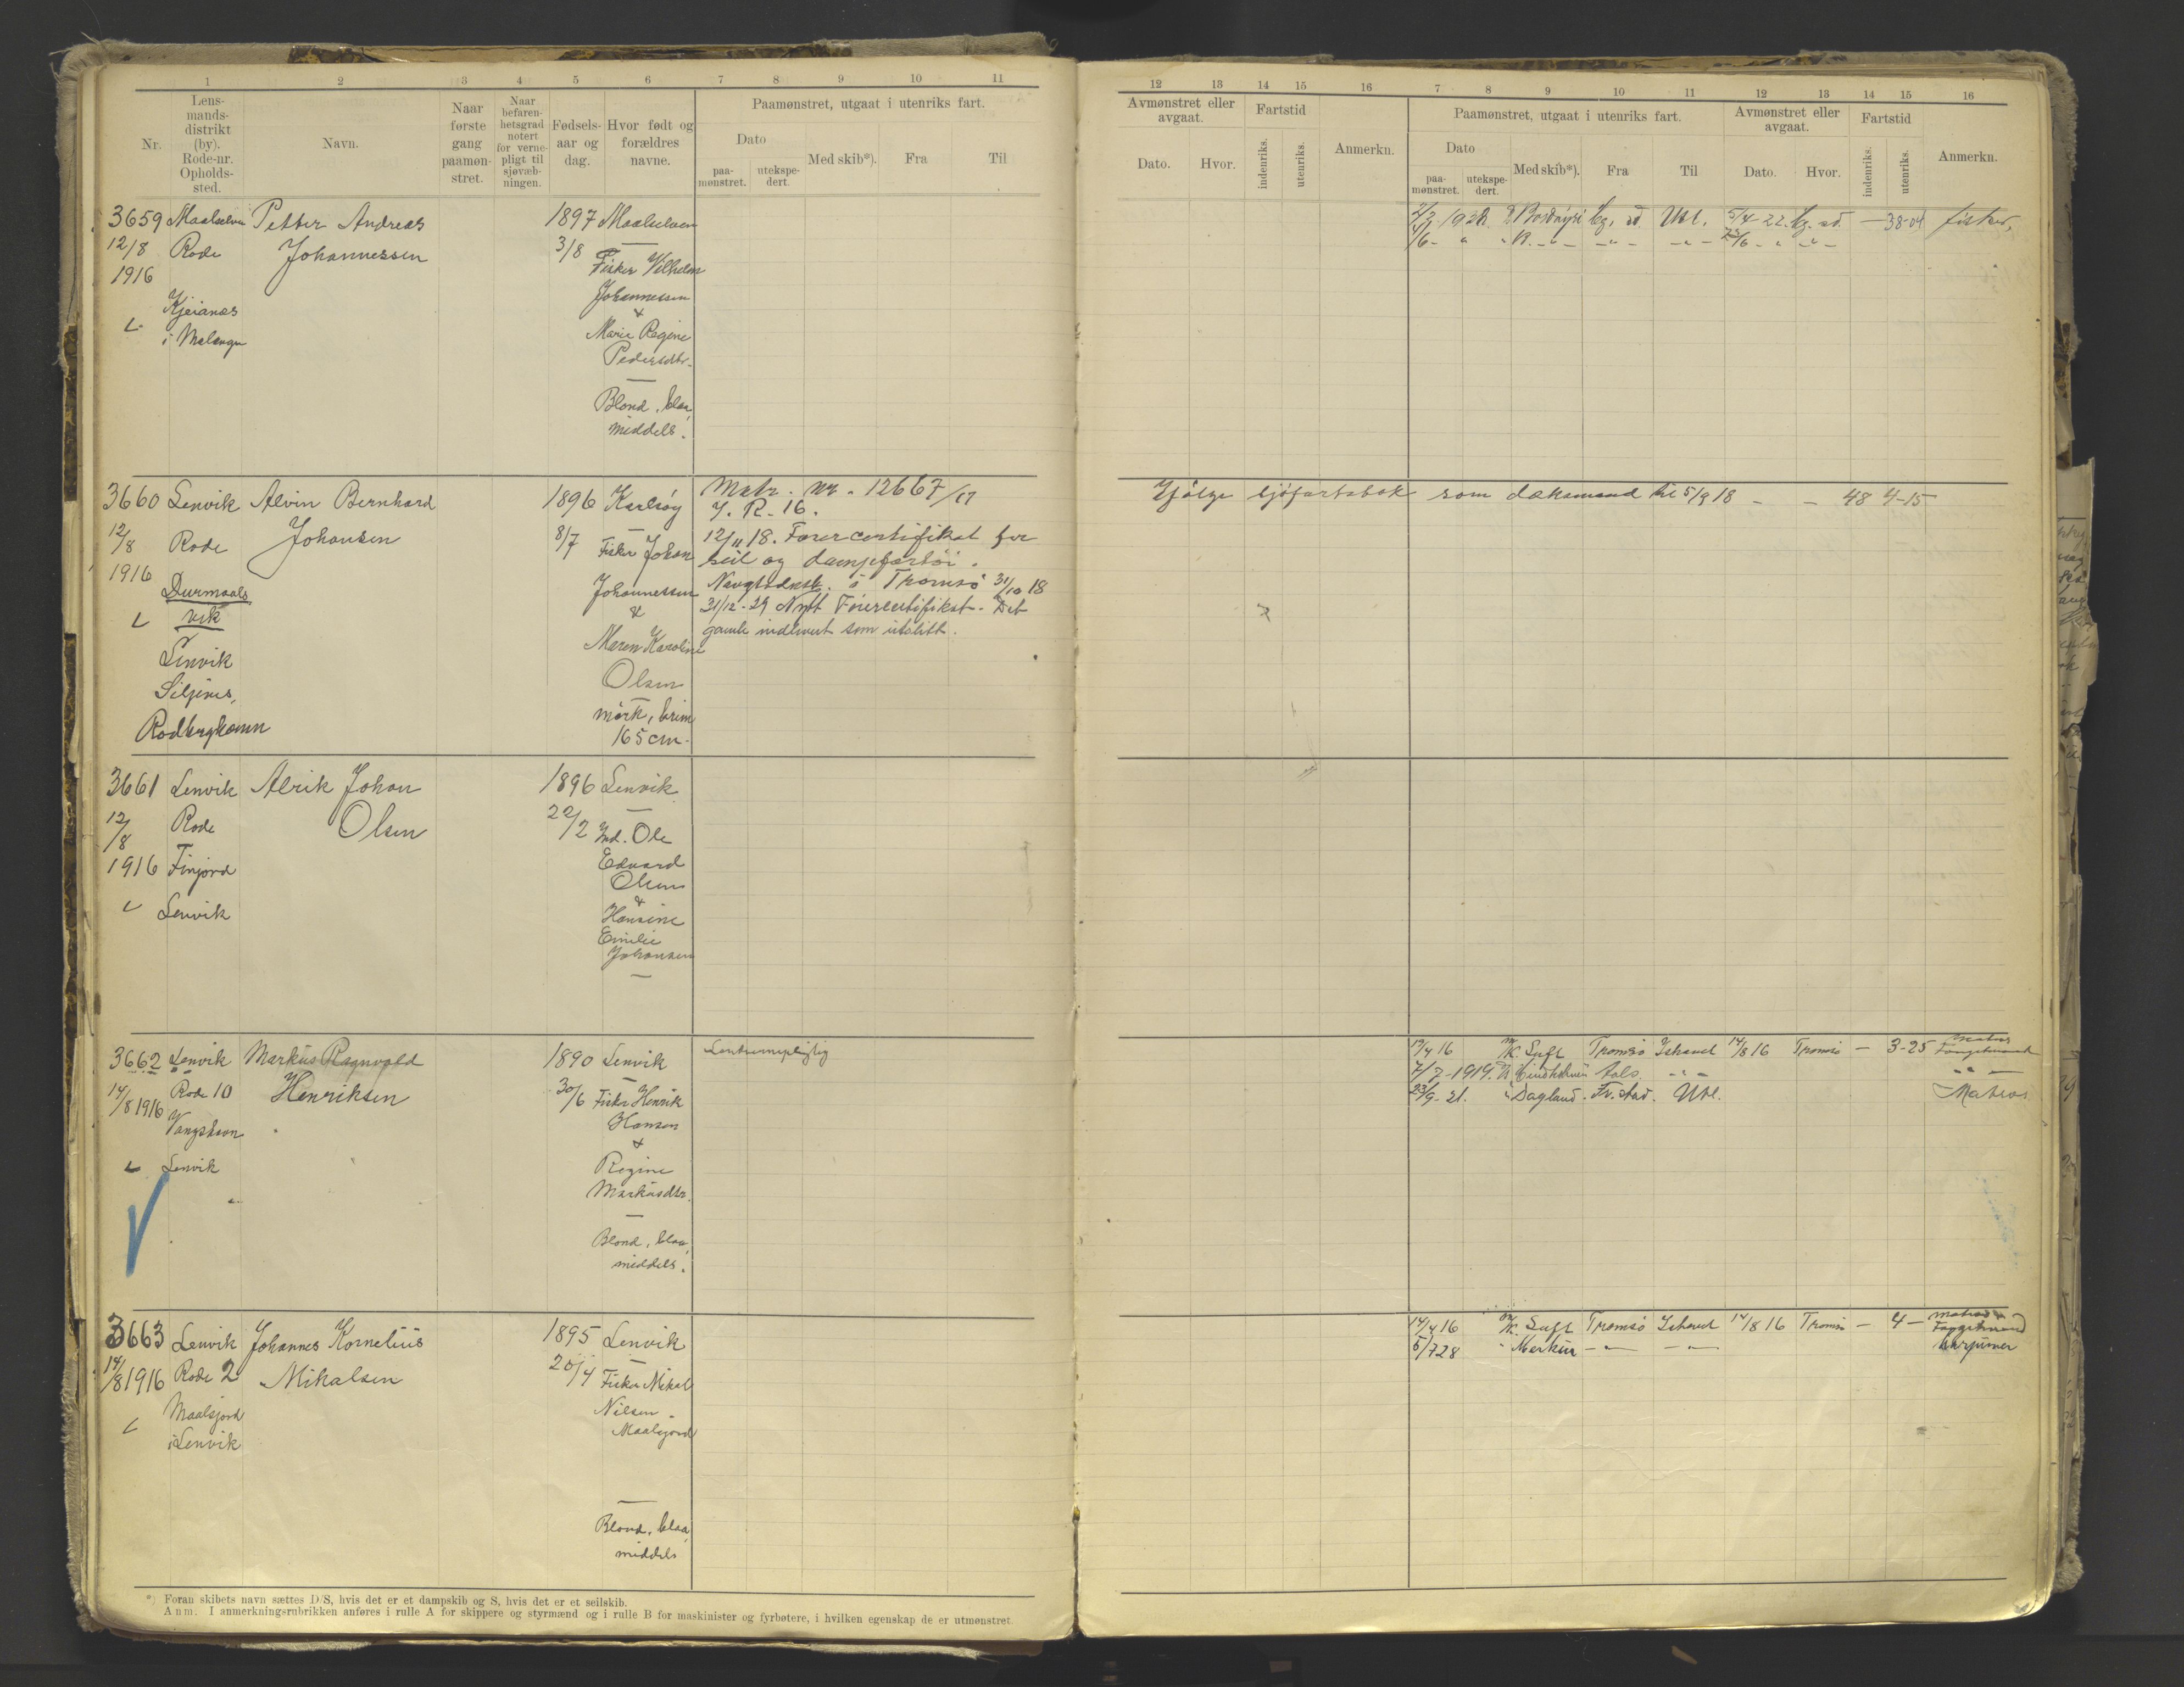 1 2 3 4 5 6 7 8 9 10 11
Nr.
Lens-
mands-
distrikt
(by).
Rode-nr.
Opholds-
sted.
Navn.
Naar
første
gang
paamøn-
stret.
Naar
befaren-
hetsgrad
notert
for verne-
pligt til
sjøvæb-
ningen.
Fødsels-
aar og
dag.
Hvor født og
forældres
navne.
Paamønstret, utgaat i utenriks fart.
Dato
paa-
mønstret.
utekspe-
dert.
Med skib*).
Fra
Til
12 13 14 15 16 7 8 9 10 11 12 13 14 15 16
Avmønstret eller
avgaat.
Dato.
Hvor.
Fartstid
indenriks.
utenriks.
Anmerkn.
Paamønstret, utgaat i utenriks fart.
Dato
paa-
mønstret.
utekspe-
dert.
Med skib*).
Fra
Til
Avmønstret eller
avgaat.
Dato.
Hvor.
Fartstid
indenriks.
utenriks.
Anmerkn.
3659
12/8
1916
Maalselven
Rode
Kjeianes
i Malangen
Petter Andreas
Johannessen
1897
3/8
Maalselven
Fisker Vilhelm
Johannessen
&
Marie Regine
Pedersdtr.
Blond, blaa,
middels.
Utl. 5/4-22. - 38-04 fisker,
3660
12/8
1916
Lenvik
Rode
Durmaals
vik
Lenvik
Rodberghamn
Alvin Bernhard
Johansen
1896
8/7
Karlsøy
Fisker Johan
Johannessen
&
Maren Karoline
Olsen
mørk, brun
165 cm.
Matr. nr. 12667/17
J. R. 16.
12/11 18. Førercertifikat for
seil og dampfartøi.
i Tromsø 31/10 18
31/12-29 Nytt Førercertifikat. Det
gamle indlevert som utslitt.
Ifølge sjøfartsbok som dæksmand til 5/9 18 - - 48 4-15
3661
12/8
1916
Lenvik
Rode
Finjord
Lenvik
Alrik Johan
Olsen
1896
22/2
Lenvik
Ole
Edvard
Olsen
&
Hansine
Emilie
Johansen
3662
14/8 1916
Lenvik
Rode 10
Vangshavn
Lenvik
Markus Ragnvald
Henriksen
1890
30/6
Lenvik
Fisker Henrik
Hansen
&
Regine
Markusdtr.
Blond, blaa,
middels.
Landvernepligtig
M/K. Sufl Tromsø Ishavet 14/8 16 Tromsø - 3-25 Matros
Fangstmand
7/7-1919.
23/9-21. " Dagland. Fr.stad. Utl. Matros
3663
14/8 1916
Lenvik
Rode 2
Maalsjord
i Lenvik
Johannes Kornelius
Mikalsen
1895
20/4
Lenvik
Fisker Mikal
Nilsen
Maalsjord
Blond, blaa,
middels
14/4 16 M/K. Sufl Tromsø Ishavet 14/8 16 Tromsø - 4 - Matros &
Fangstmand
5/7 28 " Merkur - " - - " - harpuner
*) Foran skibets navn sættes D/S, hvis det er et dampskib og S, hvis det er et seilskib.
Anm. I anmerkningsrubrikken anføres i rulle A for skippere og styrmænd og i rulle B for maskinister og fyrbøtere, i hvilken egenskap de er utmønstret.